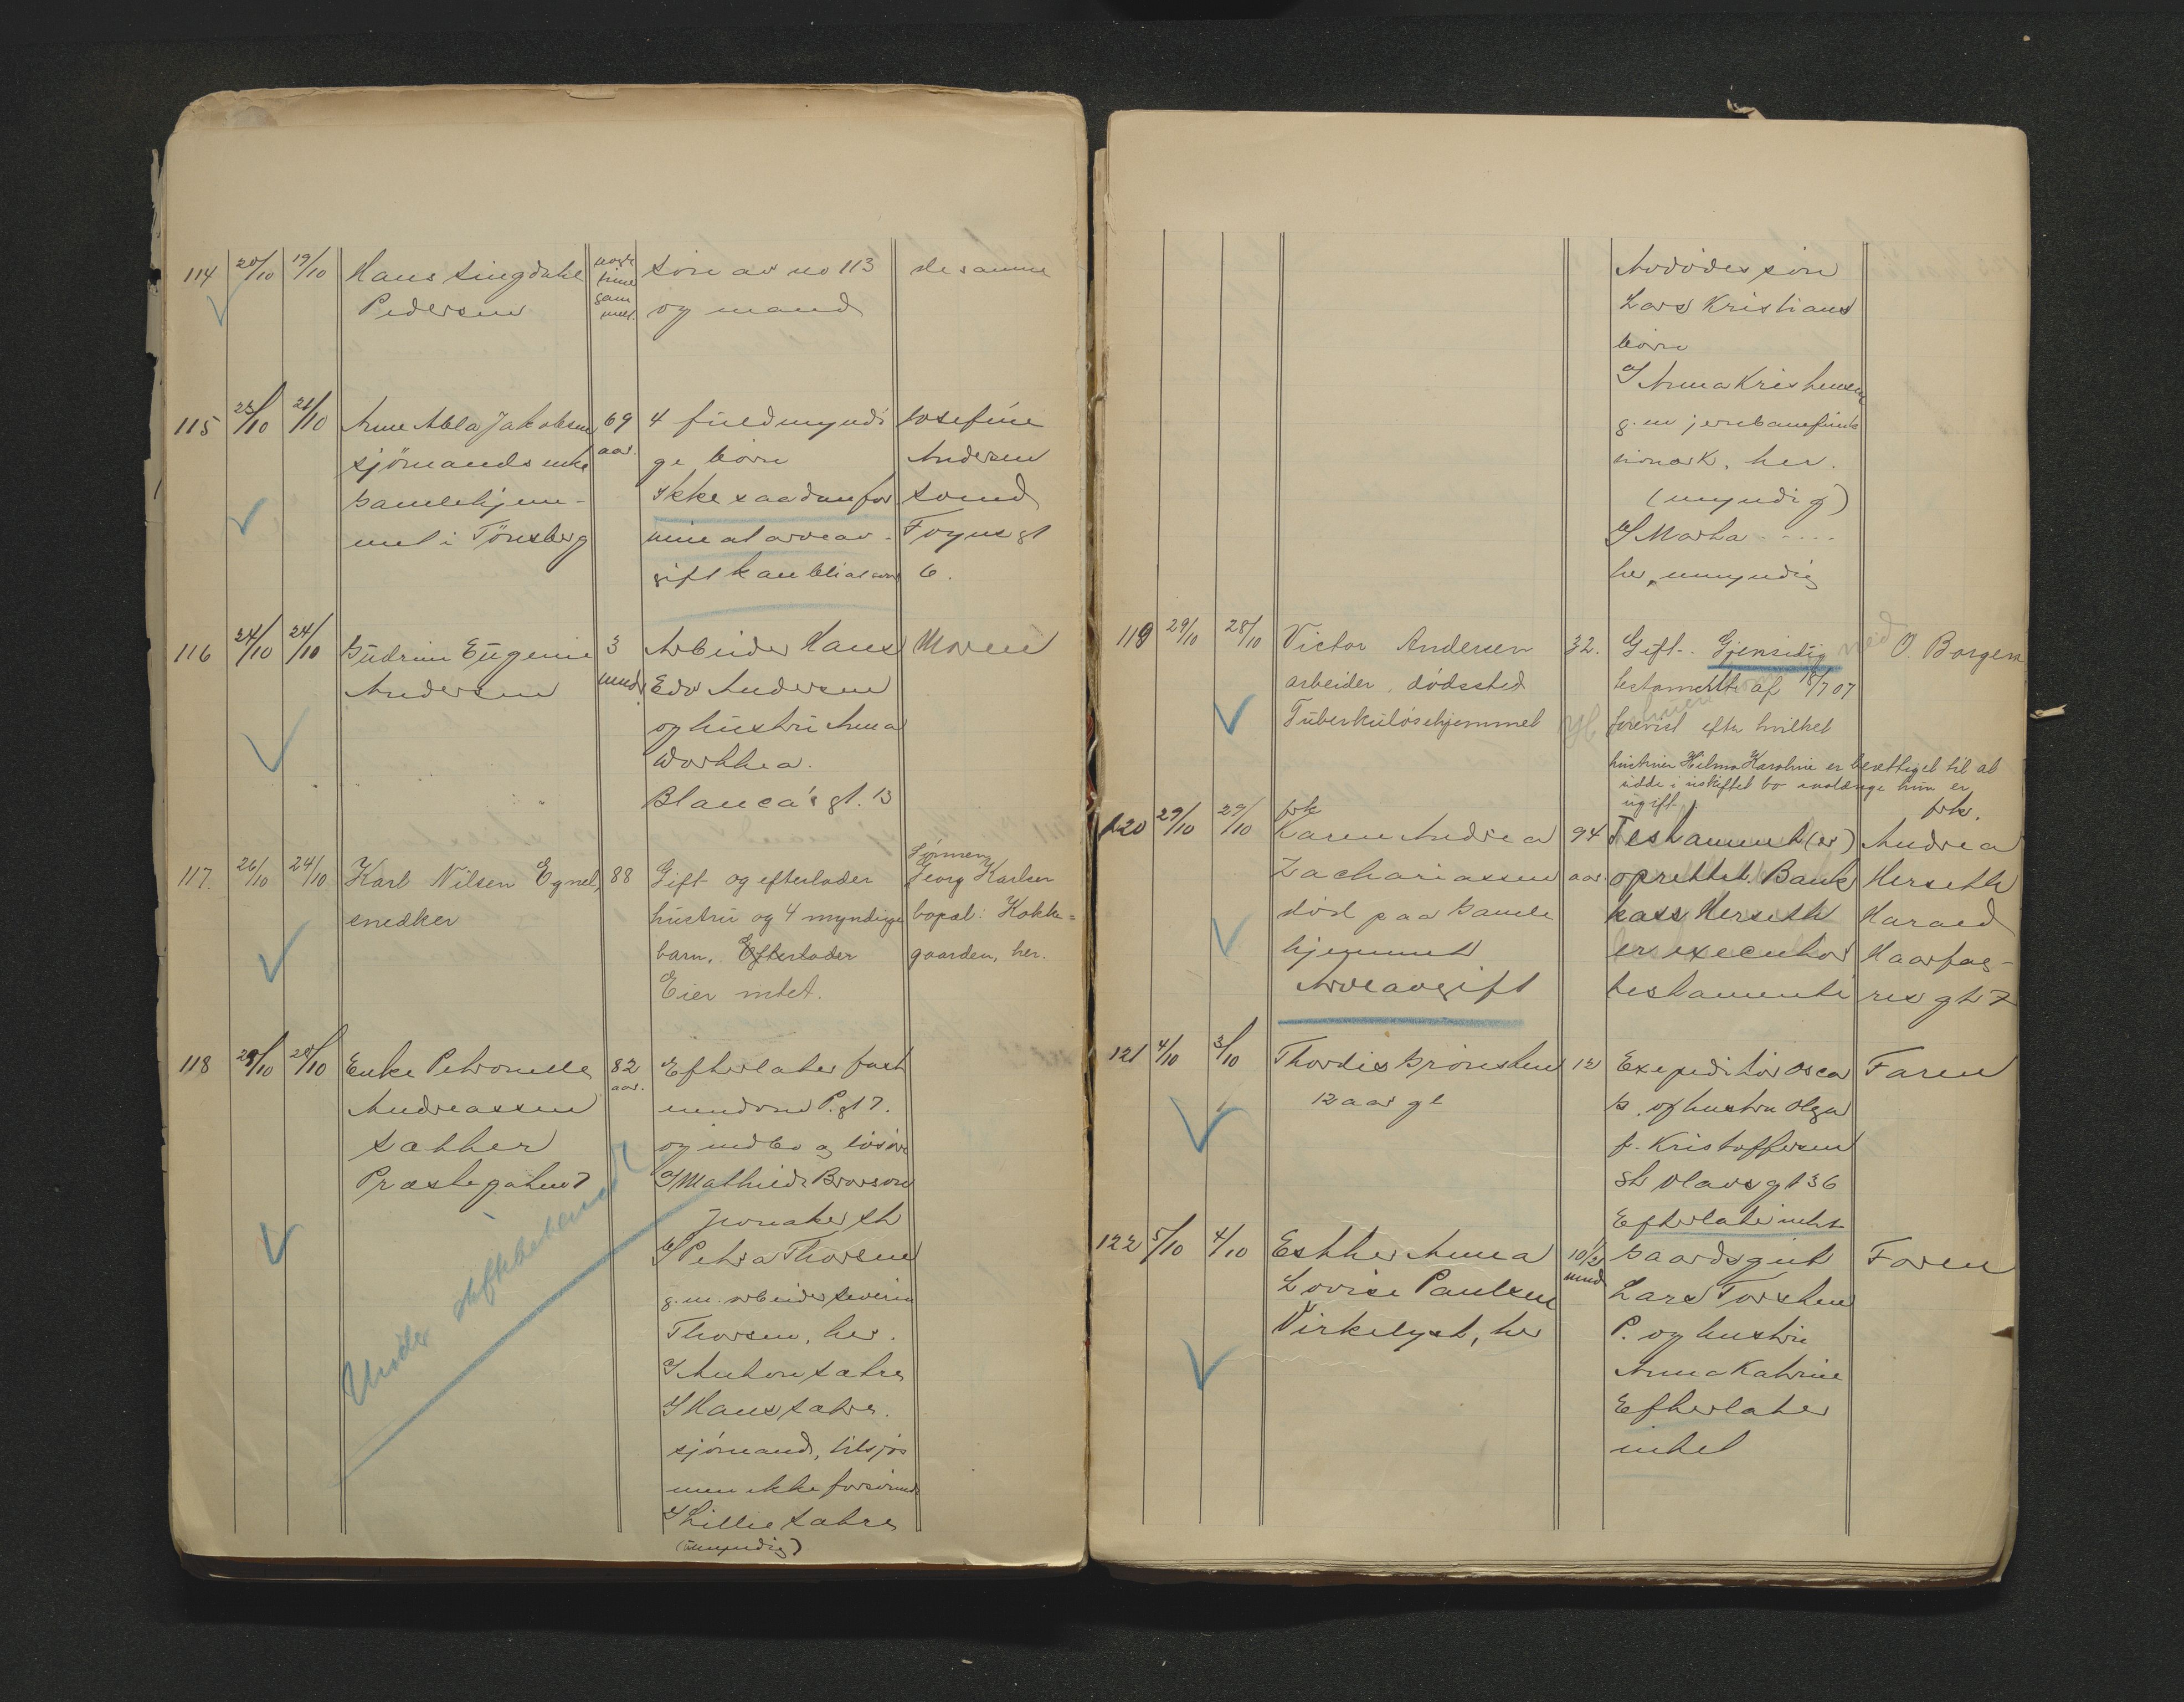 114 20/10 19/10 Hans Lingdahl nogle Søn av no 113 de samme
Pedersen time gam mel. og mand
115 23/10 21/10 Anne Abla Jakobsen 69 4 fuldmyndi Josefine
sjömands enke aar. ge børn Andersen
Gamlehjem- Ikke saadan for Sømd
met i Tönsberg mue at arveav- Foynsgt
gift kan bli at svare 6.
116 24/10 24/10 Gudrun Eugenie 3 Arbeider Hans Moren
Andersen mnd. Edv Andersen
og hustru Anna
Dorthea.
Blanca's gt. 13
Sönnen
117. 26/10 24/10 Karl Nilsen Egnel, 88 Gift og efterlader Georg Karlsen
snedker hustru og 4 myndige bopæl: Kokke=
barn. Efterlader gaarden, her.
Eier intet.
118 29/10 28/10 Enke Petronelle 82 Efterlater fast
Andreassen aar. eiendom P.gt 7.
Sæther og indbo og løsøre
Præstegaten 7 a/ Mathilde
b/ Petra Thorsen
g.m. arbeider Severin
Thorsen, her.
c/ Anton Sætre
d/ Hans Sætre.
sjømand, tilsjøs
men ikke forsvundet
e/ Lillie Sætre
(umyndig)
Under skiftebehandl
Avdødes søn
Lars Kristians
børn
a/ Anna Kristensen
g.m jernbanefunk
tionær K. her.
(myndig)
b/ Marta .....
her, umyndig
119 29/10 28/10 Victor Andersen 32. Gift. Gjensidig O. Borgen
arbeider, dödssted testamente af 18/7 07
Tuberkulösehjemmet forevist efter hvilket
hustruen Hilma Karoline er berettiget til at
sidde i uskiftet bo saalænge hun er
ugift.
120 29/10 29/10 frk Karen Andrea 94 Testament(er) frk. Andrea
Zachariassen aar oprettet. Bank Herseth
død paa Gamle kass Herseth Harald
hjemmet er executor Haarfag-
Arveavgift testamenti res gt 7
121 4/10 3/10 Thordis Brønsten 12 Expeditør Oscar Faren
12 aar gl B. og hustru Olga
f. Kristoffersen
St Olavs gt 36
Efterlater intet
122 5/10 4/10 Esther Anna 10 1/2 Gaardsgut Faren
Lovise Paulsen mnd Lars Torsten
Virkelyst, her P. og hustru
Anna Katrine
Efterlater
intet